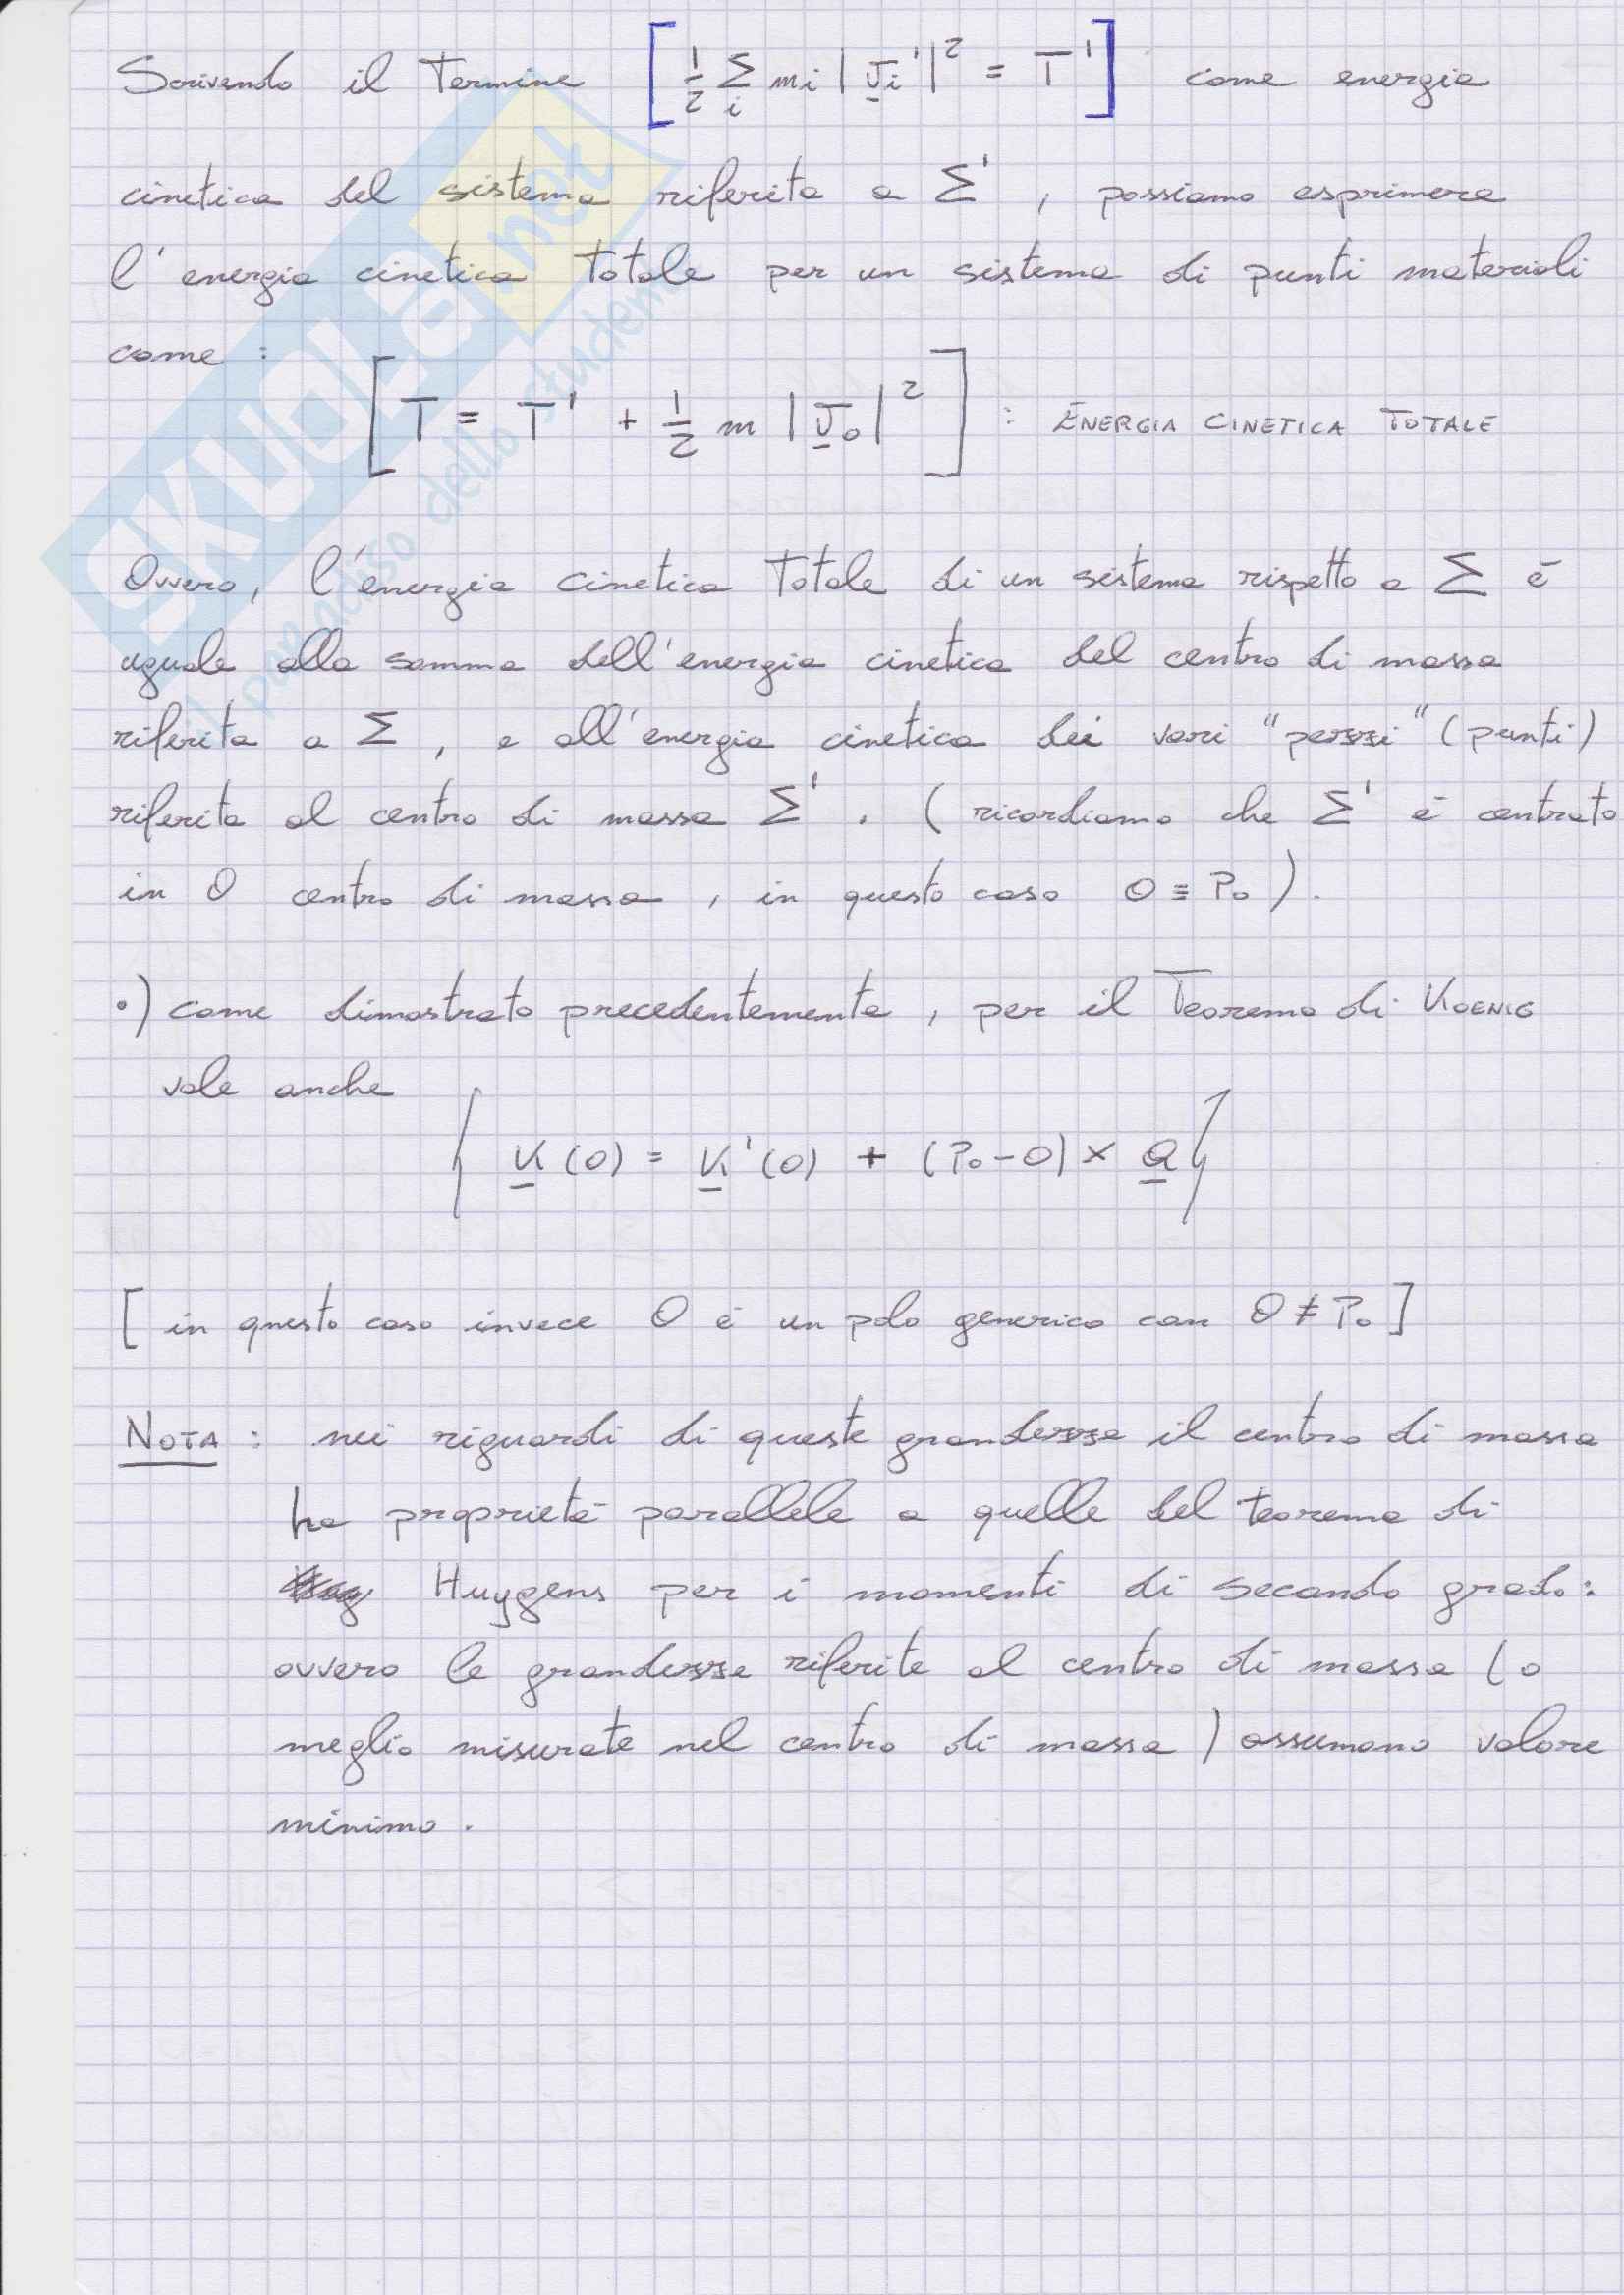 Scrivendo il Termine [ 1/2 Σi mi | v̲i' |² = T' ] come energia
cinetica del sistema riferita a Σ' , possiamo esprimere
l'energia cinetica Totale per un sistema di punti materiali
come :
[ T = T' + 1/2 m | v̲o |² ] : ENERGIA CINETICA TOTALE
Ovvero, l'energia cinetica Totale di un sistema rispetto a Σ è
uguale alla somma dell'energia cinetica del centro di massa
riferita a Σ , e all'energia cinetica dei vari "pezzi" (punti)
riferita al centro di massa Σ' . ( ricordiamo che Σ' è centrato
in O centro di massa , in questo caso O ≡ Po ) .
•) come dimostrato precedentemente , per il Teorema di KOENIG
vale anche
{ K̲ (O) = K̲'(O) + (Po - O) × Q̲ }
[ in questo caso invece O è un polo generico con O ≠ Po ]
NOTA : nei riguardi di queste grandezze il centro di massa
ha proprietà parallele a quelle del teorema di
Huygens per i momenti di secondo grado :
ovvero le grandezze riferite al centro di massa ( o
meglio misurate nel centro di massa ) assumono valore
minimo .
SKUOLA.net
il paradiso dello studente